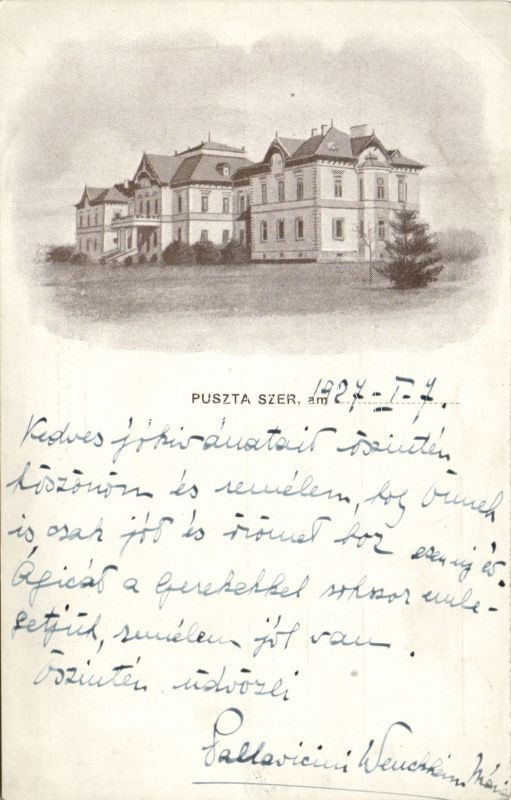 PUSZTA SZER, am 1927-I-7.
Kedves jókivánatait őszintén
köszönöm és remélem, hog Önnek
is csak jót és örömet hoz ezen új év.
Ágicát a gyerekekkel sokszor emle-
getjük, remélem jól van.
Őszintén üdvözli
Pallavicini Wenckheim Mária